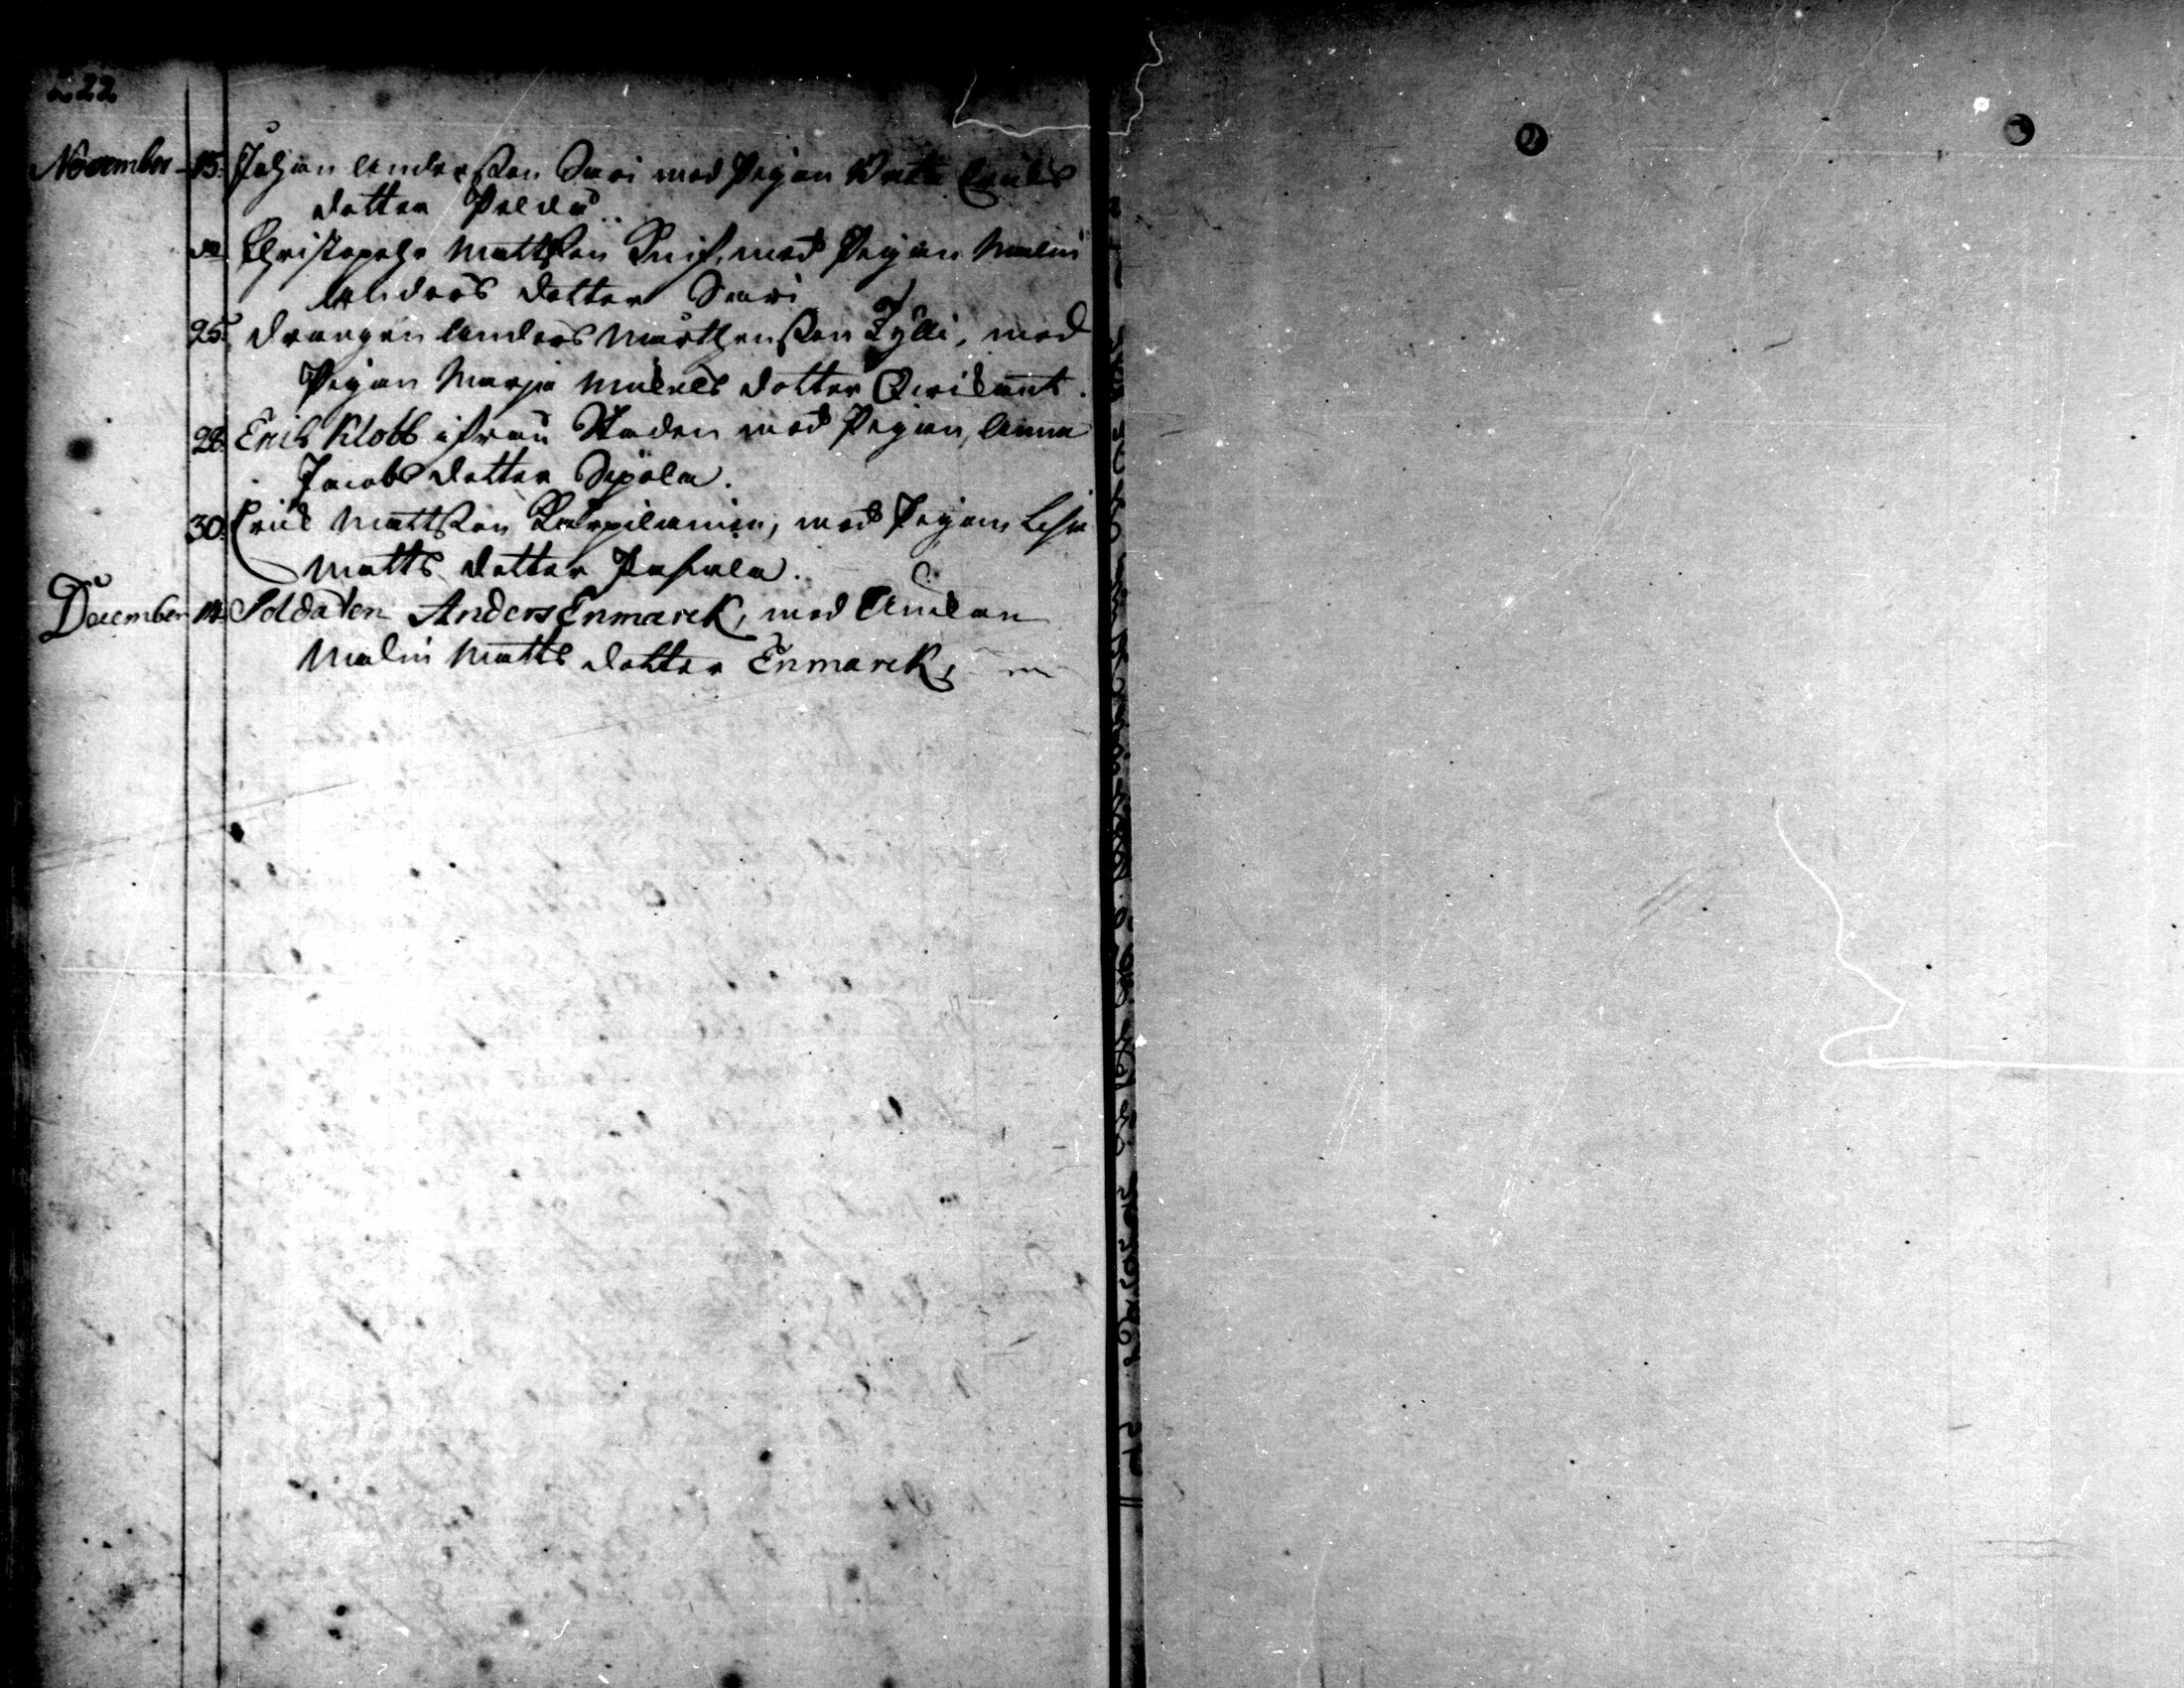 222
November 15. Johan Andersson Sari med Pigan Brita Erics
dotter Peldo.
do Christopher Mattsson Knif, med Pigan Malin
Anders dotter Sari
25. Drengen Anders Mårthensson Tylli, med
Pigan Marja Michels dotter
28. Erik Klobb ifrån Staden med Pigan, Anna
Jacobs dotter Sipola.
30. Eric Mattsson med Pigan Lisa
Matts dotter
December 14. Soldaten Anders Enmarck, med Änkan
Malin Matts dotter Enmarck,